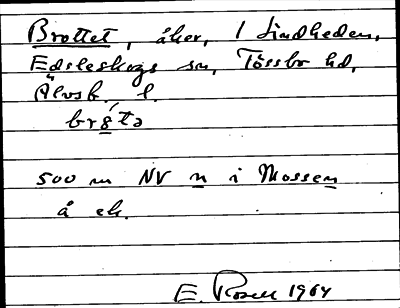 Brottet, åker, 1 Lindheden,
Edsleskogs sn, Tössbo hd,
Älvsb. l.
brɵ́tə
500 m NV n i Mossen
å ek.
E. Rosell 1964